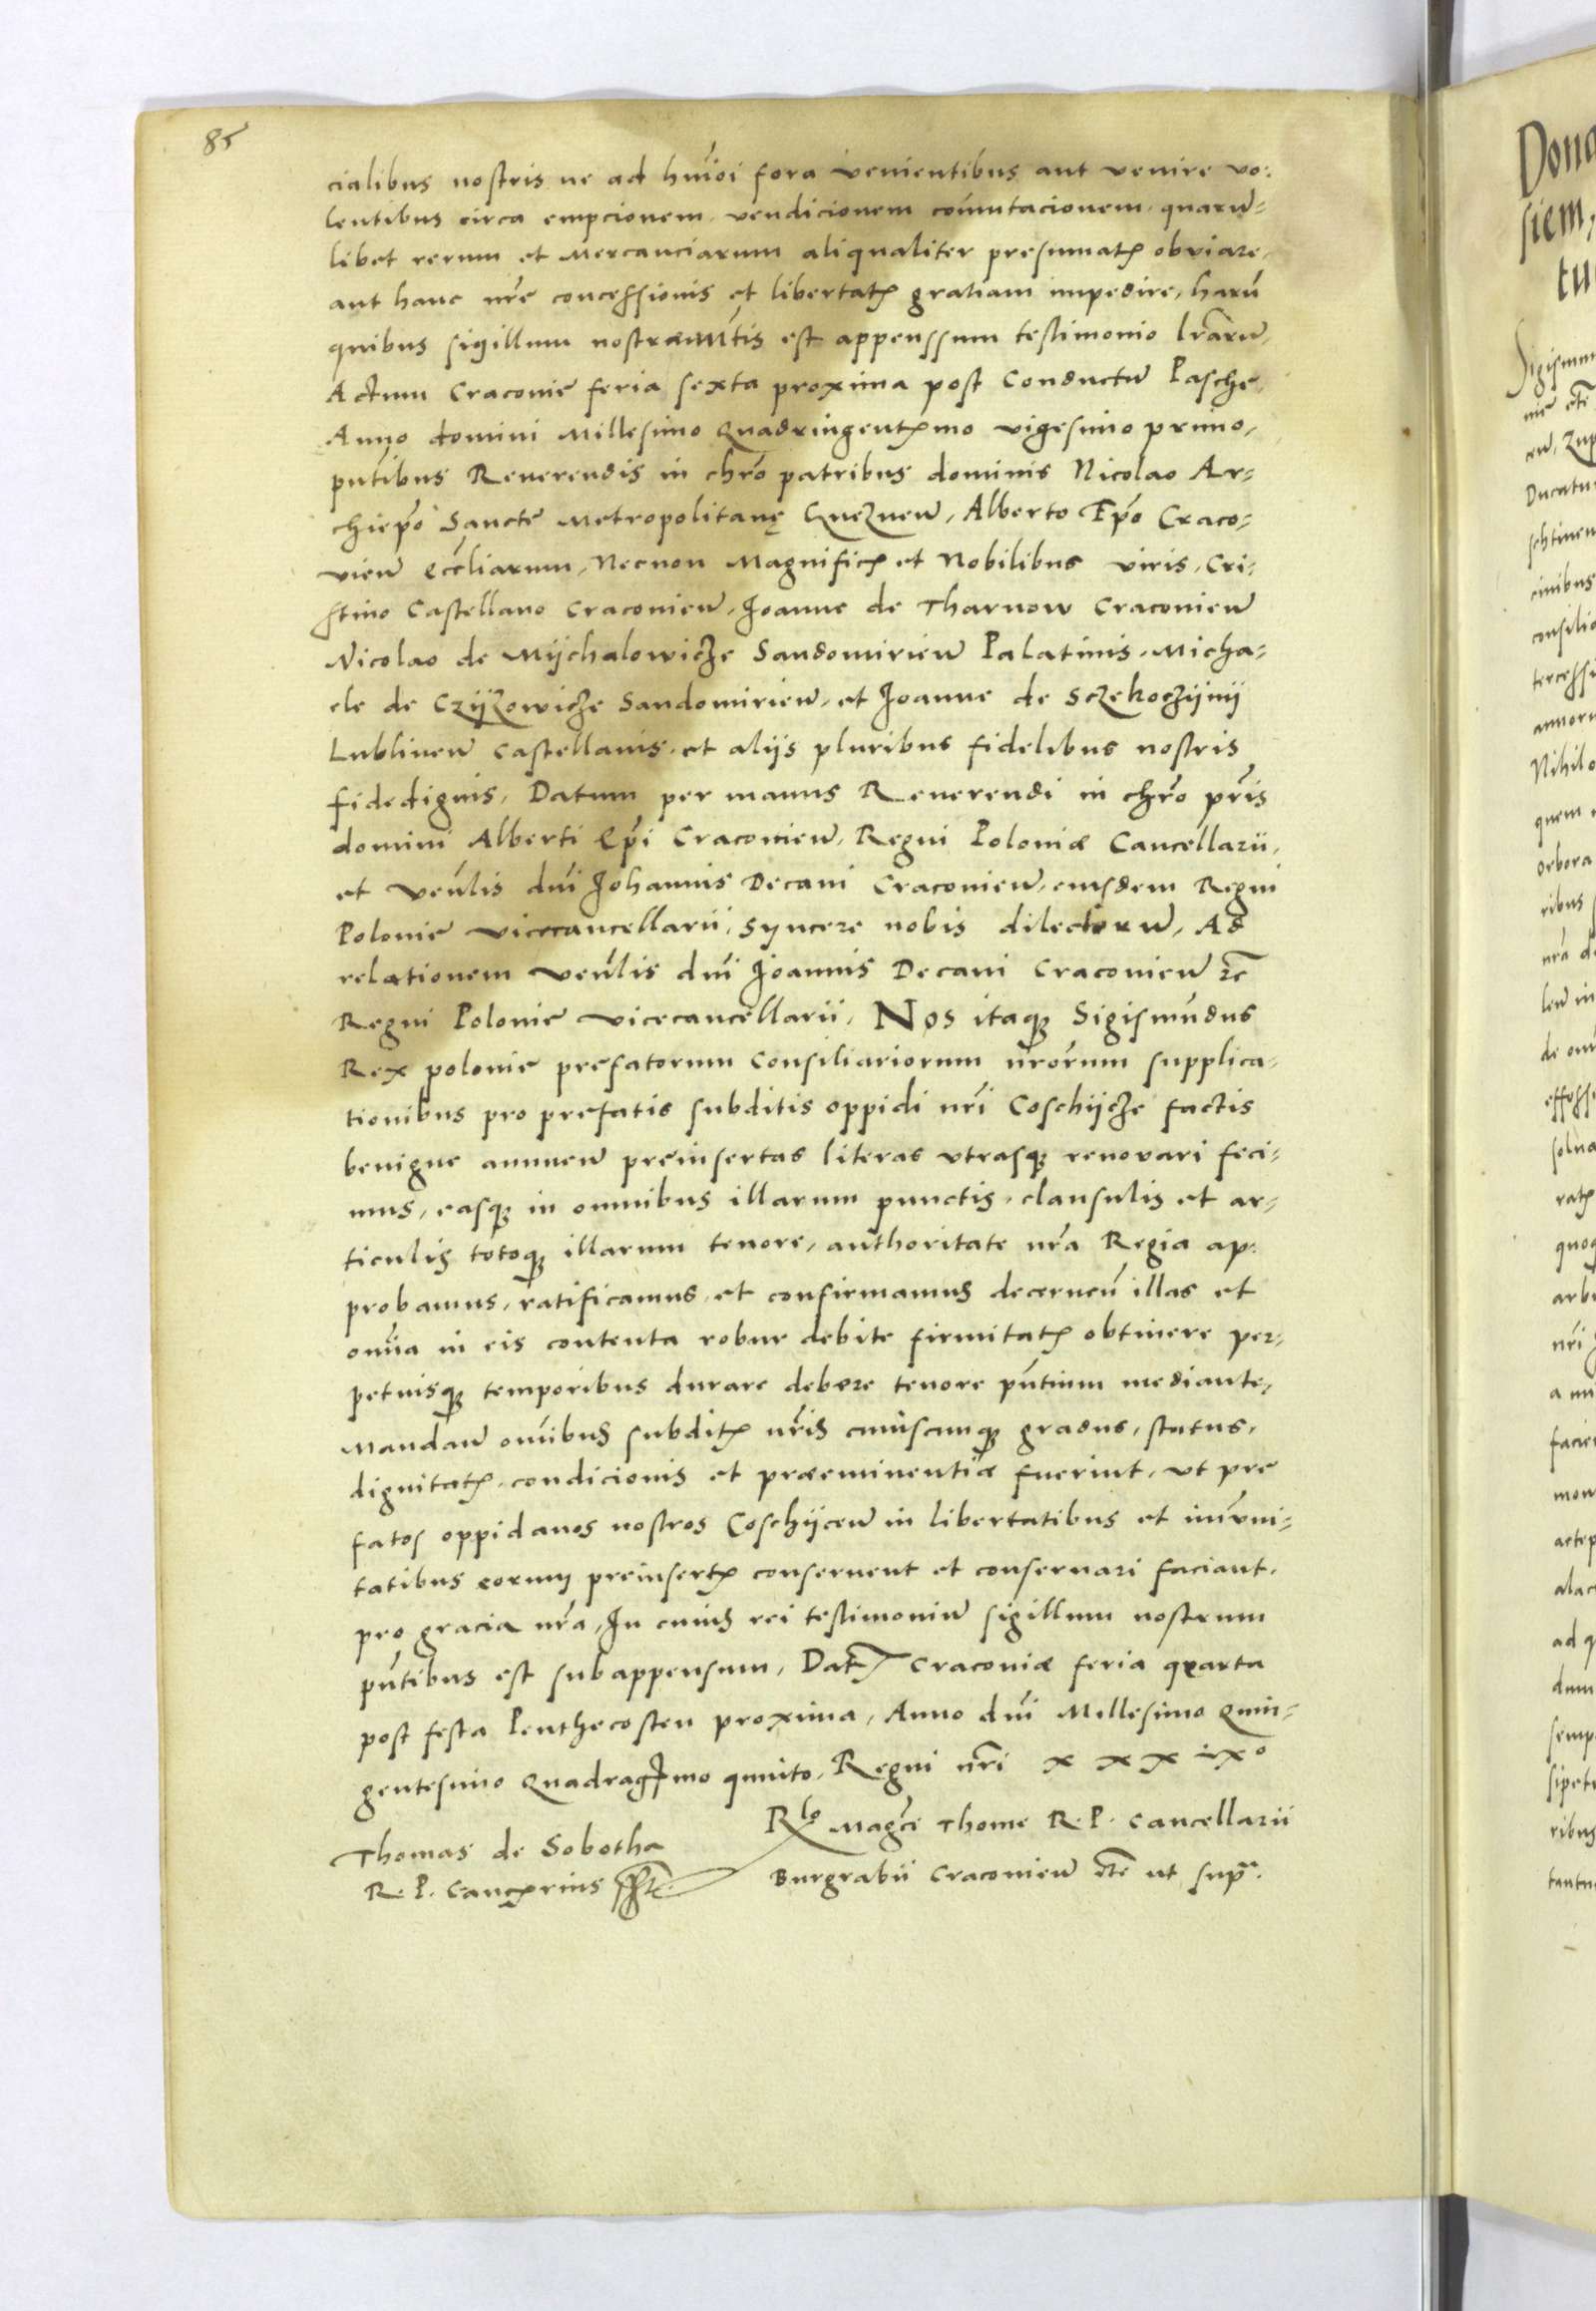 85
cialibus nostris ne ad hmōi fora venientibus aut venire vo:
lentibus circa empcionem, vendicionem com̄utacionem, quarū=
libet rerum et mercanciarum aliqualiter presumatꝭ obviare,
aut hanc nr̄e concessionis et libertatꝭ gratiam impedire, harū
quibus sigillum nostrae mt̄is est appenssum testimonio lr̄arū,
Actum Cracoviē feria sexta proxima post Conductū Pasche,
Anno domini Millesimo Quadringentꝭmo vigesimo primo,
pn̄tibus Reverendis in chrō patribus dominis Nicolao Ar=
chiep̄o Sanctē Metropolitanę Gneznen̄, Alberto Ep̄o Craco=
vien̄ eccl̄iarum, Necnon Magnificꝭ et Nobilibus viris, Cri=
stino Castellano Cracovien̄, Joanne de Tharnow Cracovien̄
Nicolao de Mijchalowicze Sandomirien̄ Palatinis, Micha=
ele de Czijzowicze Sandomirien̄, et Joanne de Sczekoczijnij
Lublinen̄ Castellanis, et alijs pluribus fidelibus nostris
fidedignis, Datum per manus Reverendi in chrō pr̄is
domini Alberti Ep̄i Cracovien̄, Regni Poloniæ Cancellarii,
et ven̄lis dn̄i Johannis Decani Cracovien̄, eiusdem Regni
Poloniē vicecancellarii, syncere nobis dilectorū, Ad
relationem ven̄lis dn̄i Joannis Decani Cracovien̄ ꝛc̄
Regni Poloniē vicecancellarii, Nos itaqꝫ Sigismūdus
Rex poloniē prefatorum Consiliariorum nr̄orum supplica=
tionibus pro prefatis subditis oppidi nr̄i Coschijcze factis
benigne annuen̄ preinsertas literas vtrasqꝫ renovari feci=
mus, easqꝫ in omnibus illarum punctis, clausulis et ar=
ticulis totoqꝫ illarum tenore, authoritate nr̄a Regia ap=
probamus, ratificamus, et confirmamus decernen̄ illas et
om̄ia in eis contenta robur debite firmitatꝭ obtinere per=
petuisqꝫ temporibus durare debere tenore pn̄tium mediante,
Mandan̄ om̄ibus subditꝭ nr̄is cuiuscunqꝫ gradus, status,
dignitatꝭ, condicionis et præeminentiæ fuerint, vt pre
fatos oppidanos nostros Coschijcen̄ in libertatibus et im̄vni=
tatibus eorum preinsertꝭ conservent et conservari faciant,
pro gracia nr̄a, In cuius rei testimoniū sigillum nostrum
pn̄tibus est subappensum, Datꝭ Cracoviæ feria quarta
post festa Penthecosten proxima, Anno dn̄i Millesimo Quin=
gentesimo Quadragꝭmo quinto, Regni nr̄i x x x ixᵒ
Thomas de Sobotha
R. P. Cancꝛrius sst
Rlo Magc̄i Thome R. P. Cancellarii
Burgrabii Cracovien̄ etc̄ ut supᵃ.
Dona
siem,
tu
Sigismu
nie etc̄
Ducatu
cinibus
consilio
Nihilo
quem
orbora
ribus